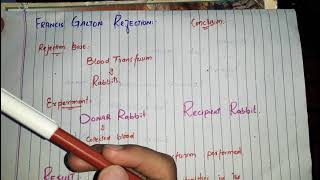 FRANCIS GALTON REJECTION:
Conclusion:
Rejection Base:
Blood Transfusion
Rabbits
Experiment:
DONAR RABBIT
RECIPENT RABBIT.
Collected blood
performed
RESULT:
in its